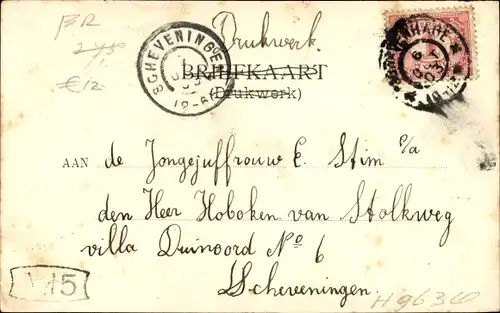 Drukwerk.
SCHEVENINGEN
BRIEFKAART
(Drukwerk)
AAN de Jongejuffrouw E. Stim c/a
den Heer Hoboken van Stolkweg
villa Duinoord No 6
Scheveningen.
€12
H9630